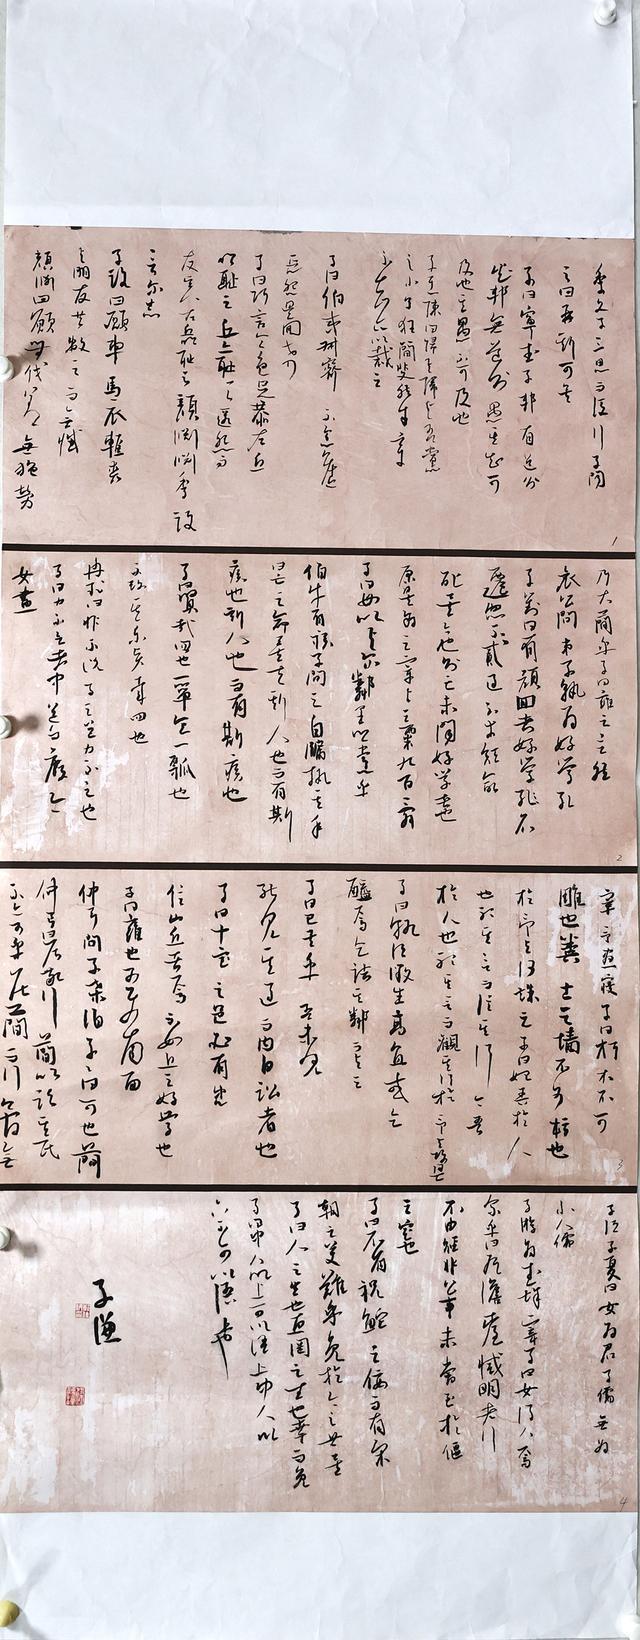 季文子三思而後行子聞
之曰再斯可矣
子曰甯武子邦有道則
知邦無道則愚其知可
及也其愚不可及也
子在陳曰歸與歸與吾黨
之小子狂簡斐然成章
不知所以裁之
子曰伯夷叔齊不念舊
惡怨是用希
子曰巧言令色足恭左丘
明恥之丘亦恥之匿怨而
友其人左丘明恥之顏淵季路
言爾志
子路曰願車馬衣輕裘
與朋友共敝之而無憾
顏淵曰願無伐善無施勞
1
乃大簡乎子曰雍之言然
哀公問弟子孰為好學孔
子對曰有顏回者好學不
遷怒不貳過不幸短命
死矣今也則亡未聞好學者也
原思為之宰與之粟九百辭
子曰毋以與爾鄰里鄉黨乎
伯牛有疾子問之自牖執其手
曰亡之命矣夫斯人也而有斯
疾也斯人也而有斯疾也
子曰賢哉回也一簞食一瓢也
冉求曰非不說子之道力不足也
子曰力不足者中道而廢今
女畫
2
宰予晝寢子曰朽木不可
雕也糞土之牆不可杇也
於予與何誅子曰始吾於人
也聽其言而信其行今吾
於人也聽其言而觀其行於予與改是
子曰孰謂微生高直或乞
醯焉乞諸其鄰而與之
子曰已矣乎吾未見
能見其過而內自訟者也
子曰十室之邑必有忠
信如丘者焉不如丘之好學也
子曰雍也可使南面
仲弓問子桑伯子子曰可也簡
仲弓曰居敬而行簡以臨其民
不亦可乎居簡而行簡無
3
子謂子夏曰女為君子儒無為
小人儒
子游為武城宰子曰女得人焉
爾乎曰有澹臺滅明者行
不由徑非公事未嘗至於偃
之室也
子曰不有祝鮀之佞而有宋
朝之美難乎免於今之世矣
子曰人之生也直罔之生也幸而免
子曰中人以上可以語上也中人以
下不可以語上也
4
子謙